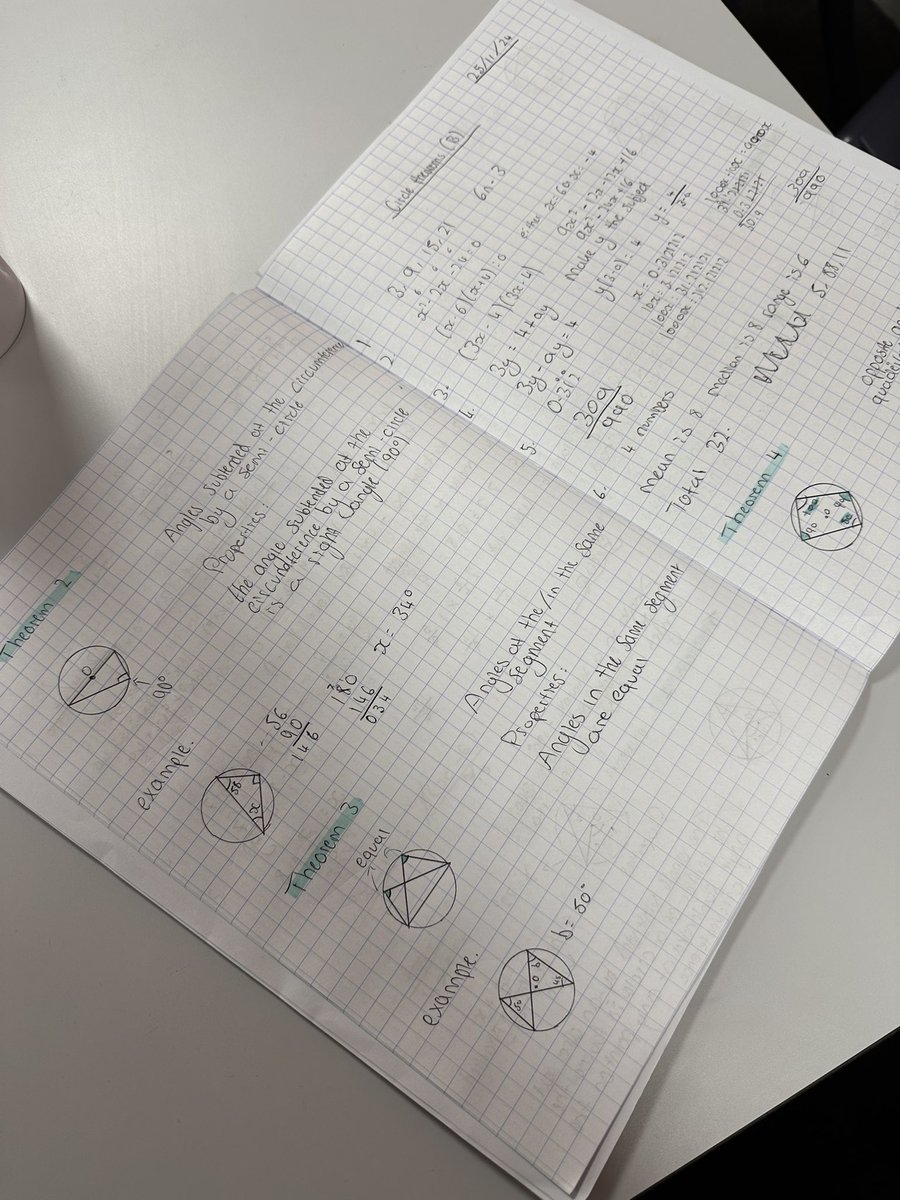 Theorem 2
Angles subtended at the circumference
by a semi-circle
Properties
the angle subtended at the
circumference by a semi-circle
is a right angle (90°)
O
90°
example.
56
x
56
90
146
180
146
034
x = 34°
Theorem 3
Angles at the/in the same
segment
Properties:
Angles in the same segment
are equal
equal
example.
50
O
b
45
b = 50°
25/11/24
Circle theorems (B)
1
3, 9, 15, 21
6 6 6
6n-3
2
x² - 2x - 24 = 0
(x-6)(x+4)=0
either x=6 or x=-4
3.
(3x-4)(3x-4)
9x² - 12x - 12x + 16
9x² - 24x + 16
4.
Make y the subject
3y = 4 + ay
3y - ay = 4
y(3-a) = 4
5.
x = 0.3121212
10x = 3.121212
100x = 31.21212
1000x = 312.1212
309
990
309
990
6.
4 numbers
mean is 8 median is 8 range is 6
Total 32.
5,8,8,11
Theorem 4
O
opposite